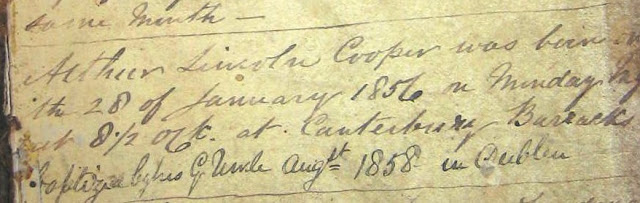 same Month —
Arthur Lincoln Cooper was born
th 28 of January 1856 on Monday
at 8 1/2 ock. at Canterbury Barracks
Baptized by his G. Uncle Augst 1858 in Dublin